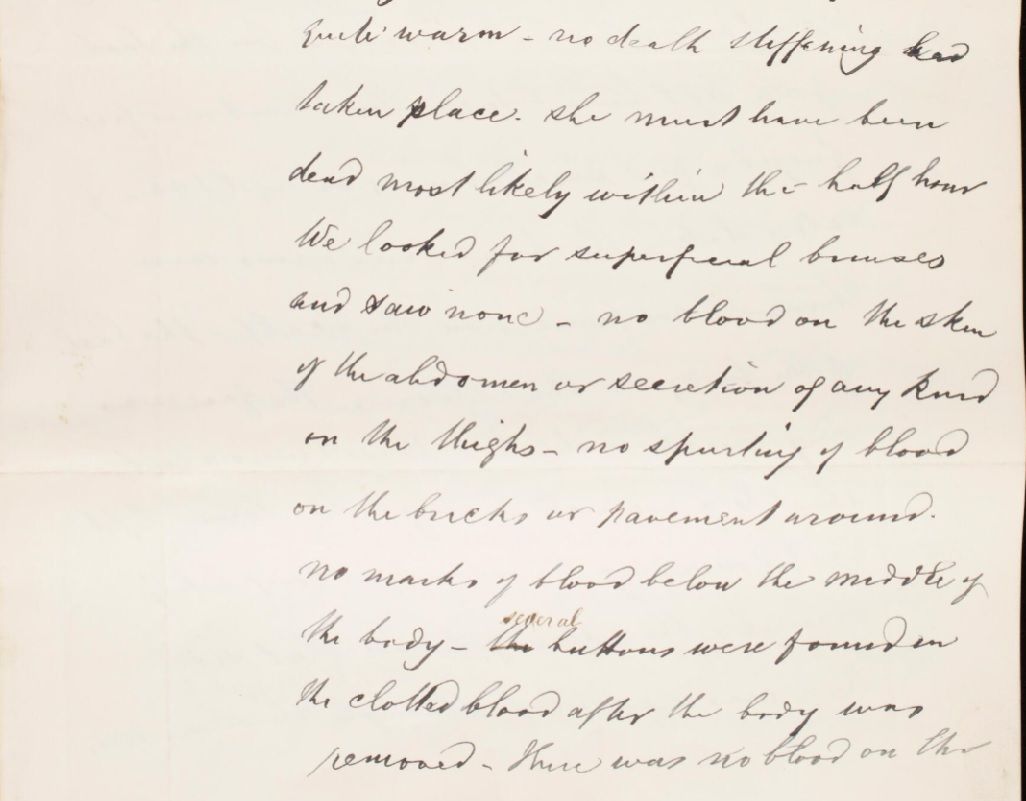 quite warm - no death stiffening had
taken place. she must have been
dead most likely within the half hour
We looked for superficial bruises
and saw none - no blood on the skin
of the abdomen or secretion of any kind
on the thighs - no spurting of blood
on the bricks or pavement around.
no marks of blood below the middle of
several
the body - the buttons were found in
the clotted blood after the body was
removed - There was no blood on the